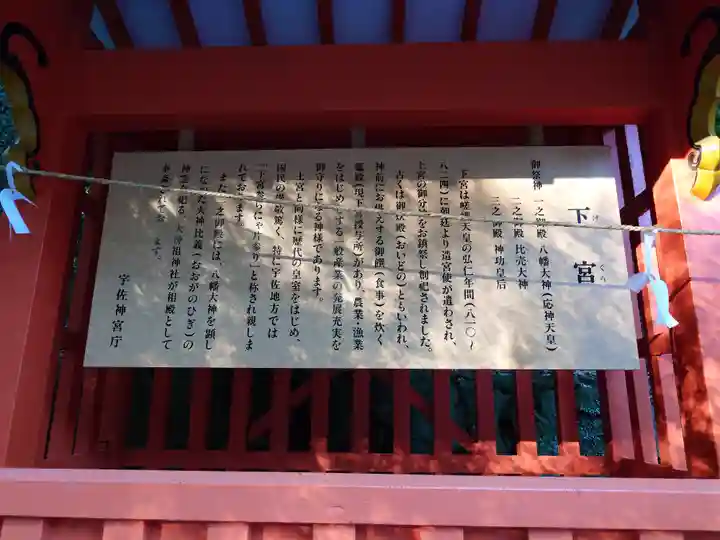 下宮
げ ぐう
御祭神 一之御殿 八幡大神(応神天皇)
二之御殿 比売大神
三之御殿 神功皇后
下宮は嵯峨天皇の弘仁年間(八一〇〜
八二四)に勅廷より造宮使が遣わされ、
上宮の御分霊をお鎮祭し創祀されました。
古くは御炊殿(おいどの)ともいわれ、
神前にお供えする御饌(食事)を炊く
竈殿(現下宮授与所)があり、農業・漁業
をはじめとする一般産業の発展充実を
御守りになる神様であります。
上宮と同様に歴代の皇室をはじめ、
国民の崇敬篤く、特に宇佐地方では
「下宮参らにゃ片参り」と称され親しま
れております。
また一之御殿には、八幡大神を顕し
になった大神比義(おおがのひぎ)の
神霊を祀る、大神祖神社が相殿として
ます。
宇佐神宮庁